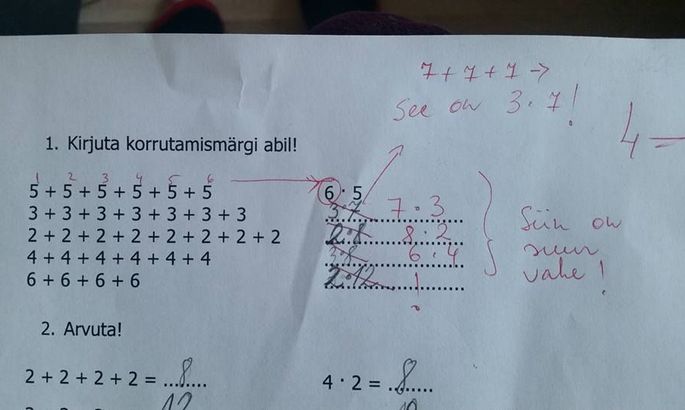 7+7+7→
See on 3·7!
4—
1. Kirjuta korrutamismärgi abil!
1 2 3 4 5 6
5 + 5 + 5 + 5 + 5 + 5 6 · 5
3 + 3 + 3 + 3 + 3 + 3 + 3 3·7 7·3
2 + 2 + 2 + 2 + 2 + 2 + 2 + 2 2·8 8·2
4 + 4 + 4 + 4 + 4 + 4 3·8 6·4
6 + 6 + 6 + 6 2·12 !
Siin on
suur
vahe!
2. Arvuta!
2 + 2 + 2 + 2 = ...8..... 4 · 2 = ...8.....
12